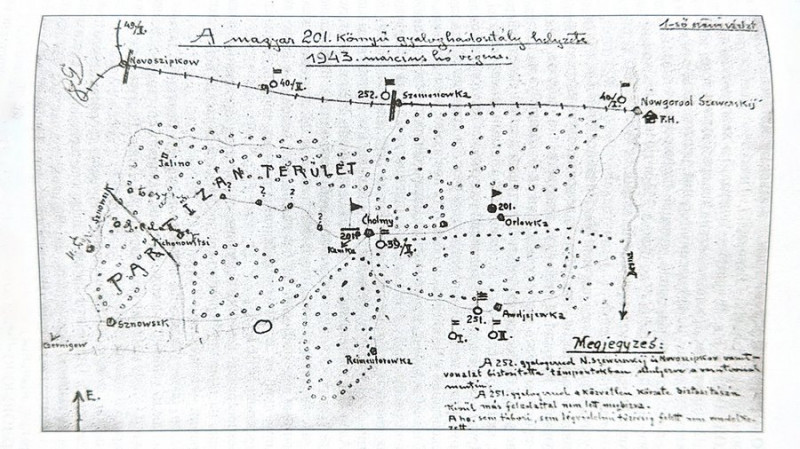 1-ső számú vázlat
A magyar 201. Könnyű gyaloghadosztály helyzete
1943. március hó végén.
49/I.
Novoszipkow
40./II.
252.
Szemenowka
40/I.
Nowgorod Szewerskij
F.H.
Jalino
PARTIZÁN TERÜLET
?
?
?
?
Tichonowitsi
Cholmy
201
Kamka
39./II.
201.
Orlowka
Desna
Sznowszk
Czernigow
251.
Awdjejewka
I.
II.
Reimentorowka
É.
Megjegyzés:
A 252. gyalogezred N.szewerskij és Novoszipkov vasut-
vonalat biztositotta támpontokban elhelyezve a vasutvonal
mentén.
A 251. gyalogezred a közvetlen körzete biztositásán
kivül más feladattal nem let megbizva.
A ho. sem tábori, sem légvédelmi tüzérség felett nem rendelke-
zett.